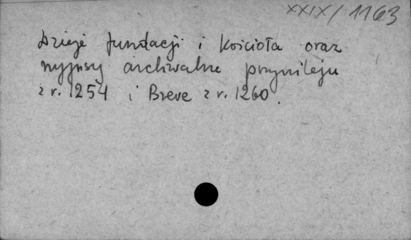 XXIX/1163
Dzieje fundacji i kościoła oraz
wypisy archiwalne przywileju
z r. 1254 i Breve z r. 1260.